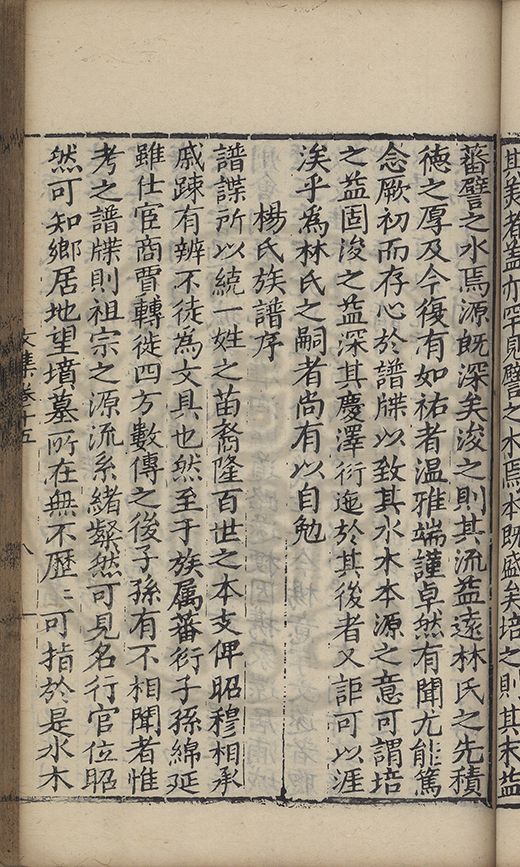 其美者蓋亦罕見譬之木焉本既盛矣培之則其末益
蕃譬之水焉源既深矣浚之則其流益遠林氏之先積
德之厚及今復有如祐者温雅端謹卓然有聞尤能篤
念厥初而存心於譜牒以致其水木本源之意可謂培
之益固浚之益深其慶澤衍迤於其後者又詎可以涯
涘乎為林氏之嗣者尚有以自勉
楊氏族譜序
譜諜所以統一姓之苗裔隆百世之本支俾昭穆相承
戚踈有辨不徒為文具也然至于族属蕃衍子孫綿延
雖仕宦商賈轉徙四方數傳之後子孫有不相聞者惟
考之譜牒則祖宗之源流系緒粲然可見名行官位昭
然可知鄉居地望墳墓所在無不歷歷可指於是水木
文集卷十五
八